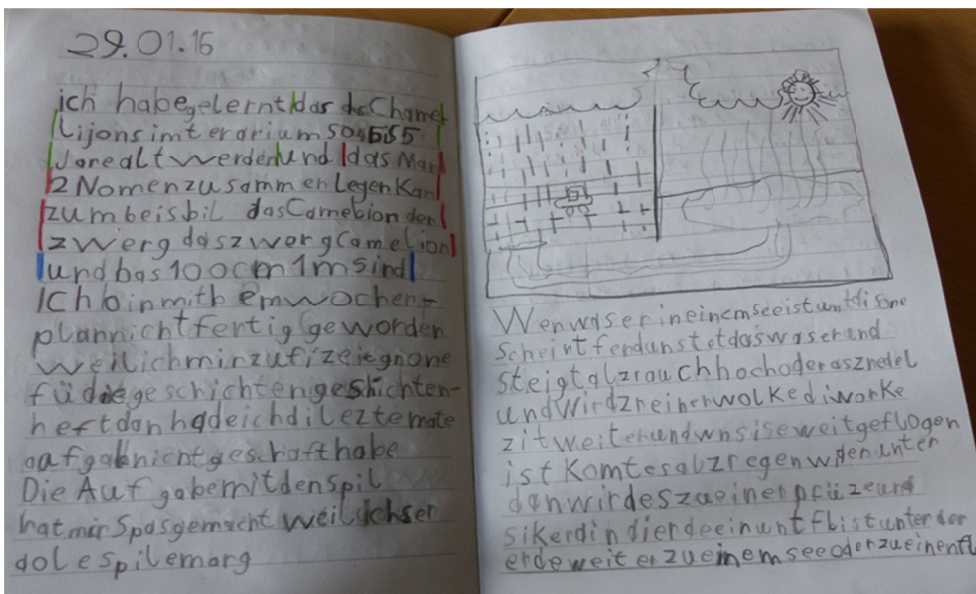 29.01.16
ich habegelerntdas dsChamel
Lijonsimterarium so bis 5
Jare alt werdenund das Man
2 Nomen zusammen Legen Kan
zumbeisbil dasCamelion der
zwerg daszwergCamelion
undbas100cm1msind
Ich bin mit bemwochen-
plannichtfertig geworden
weilichmirzufizeitgnone
fü diegeschichtenigeschichten-
heftdan hadeichdileztemate
aafgabnichtgeschafthabe
Die Auf gabemitdenspil
hatmirSpasgemacht weilichser
dolespilemarg
Wenwaserineinemseeistuntdisone
scheint ferdunstetdaswaserund
steigtalzrauchhochoderasznedel
undwirdzueinerwolkediwolke
zitweiterundwnsiseweitgeflogen
istKomtesalzregenwider unten
danwirdeszueinerpfüzeund
sikerdindierdeeinuntflistunterder
erdeweiterzueinemseeoderzueinenfl